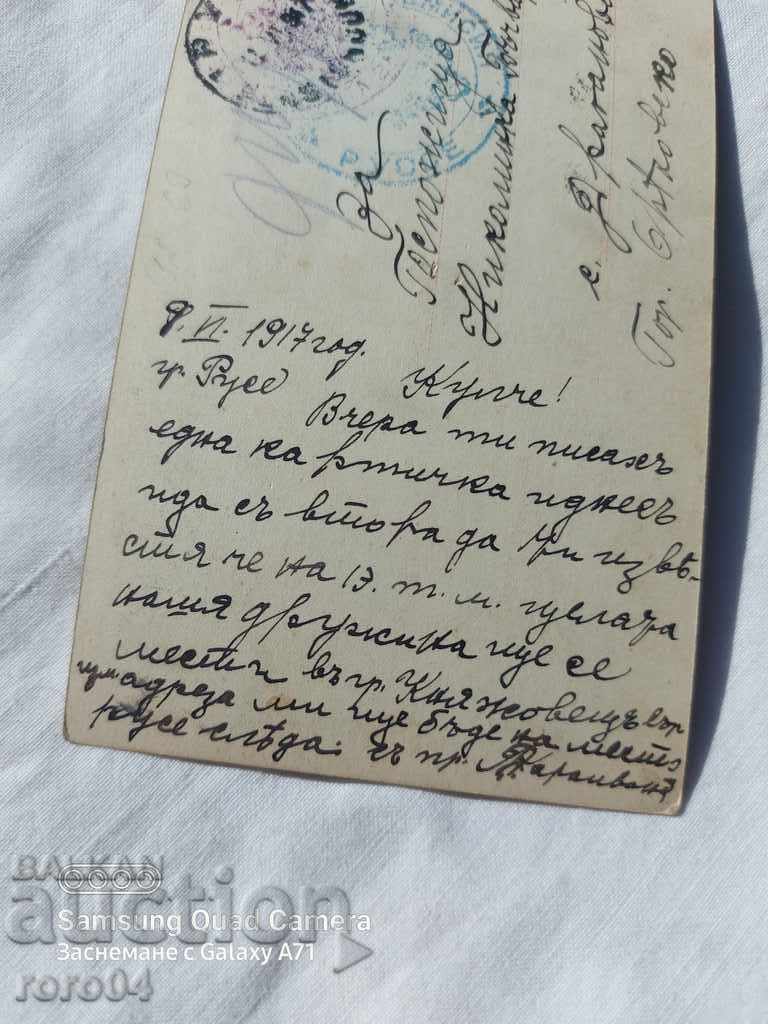 За
Госпожица
Никалинка
с. Драганово
Гор. Орѣховско
8.VI. 1917 год.
гр. Русе Купче!
Вчера ти писахъ
една картичка иднесъ
ида съ втора да ти извѣ-
стя че на 13. т. м. цялата
ношя дружина ще се
мести въ гр. Княжовецъ
адреза ми ще бѫде на место
русе слѣда. съ пр.
BALKAN
auction
roro04
Samsung Quad Camera
Заснемане с Galaxy A71